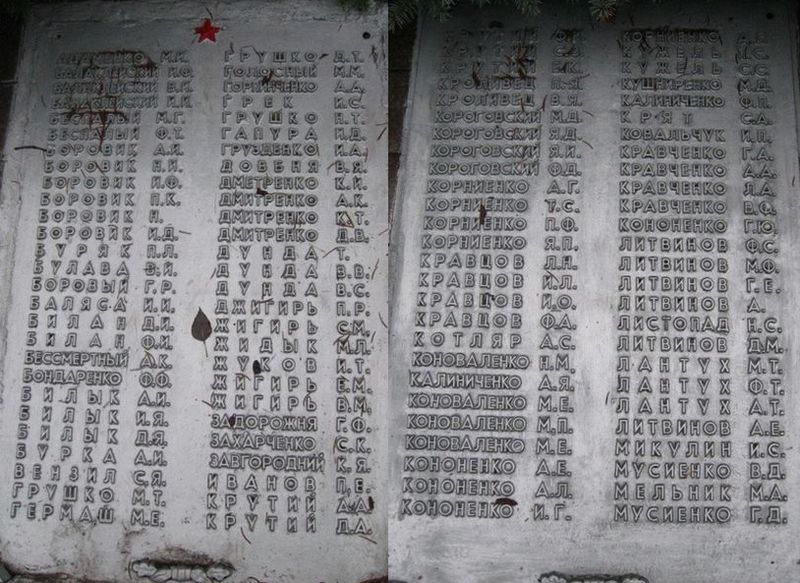 БАЛАКЛЕЙСКИЙ И.Ф.
БАЛАКЛЕЙСКИЙ В.К.
БАЛАКЛЕЙСКИЙ И.И.
БЕСПАЛЫЙ М.Г.
БЕСПАЛЫЙ Ф.Т.
БОРОВИК А.И.
БОРОВИК Н.И.
БОРОВИК И.Ф.
БОРОВИК П.К.
БОРОВИК Н.
БОРОВИК И.Д.
БУРЯК П.Л.
БУЛАВА В.И.
БОРОВЫЙ Г.Р.
БАЛЯСА И.И.
БИЛАН Д.И.
БИЛАН Ф.И.
БЕССМЕРТНЫЙ А.К.
БОНДАРЕНКО Ф.Ф.
БИЛЫК А.И.
БИЛЫК И.Я.
БИЛЫК Д.Я.
БУРКА А.И.
ВЕНЗИЛ С.Я.
ГРУШКО М.Т.
ГЕРМАШ М.Е.
ГРУШКО Д.Т.
ГОЛОСНЫЙ М.М.
ГОРНИЧЕНКО А.А.
ГРЕК И.С.
ГРУШКО Н.Т.
ГАПУРА И.Д.
ГРУЗДЕНКО И.А.
ДОВБНЯ В.Я.
ДМЕТРЕНКО К.И.
ДМИТРЕНКО А.К.
ДМИТРЕНКО К.Т.
ДМИТРЕНКО Д.В.
ДУНДА Т.
ДУНДА В.В.
ДУНДА В.С.
ДЖИГИРЬ П.Р.
ЖИГИРЬ С.М.
ЖИДЫК М.П.
ЖУКОВ И.Т.
ЖИГИРЬ Е.М.
ЖИГИРЬ В.М.
ЗАДОРОЖНЯ Г.Ф.
ЗАХАРЧЕНКО С.К.
ЗАВГОРОДНИЙ К.Я.
ИВАНОВ П.Е.
КРУТИЙ А.А.
КРУТИЙ Д.А.
КРУТИЙ Ф.И.
КРУТИЙ С.А.
КРУТИЙ Е.К.
КРОЛИВЕЦ П.Я.
КРОЛИВЕЦ В.Я.
КОРОГОВСКИЙ М.Д.
КОРОГОВСКИЙ Я.Д.
КОРОГОВСКИЙ Я.И.
КОРОГОВСКИЙ Ф.Д.
КОРНИЕНКО А.Г.
КОРНИЕНКО Т.С.
КОРНИЕНКО П.Ф.
КОРНИЕНКО Я.П.
КРАВЦОВ Д.Н.
КРАВЦОВ И.Л.
КРАВЦОВ И.О.
КРАВЦОВ Ф.А.
КОТЛЯР А.С.
КОНОВАЛЕНКО Н.М.
КАЛИНИЧЕНКО А.Я.
КОНОВАЛЕНКО М.Е.
КОНОВАЛЕНКО М.П.
КОНОВАЛЕНКО М.Е.
КОНОНЕНКО А.Е.
КОНОНЕНКО А.Л.
КОНОНЕНКО И.Г.
КОРНИЕНКО
КУЖЕЛЬ П.С.
КУЖЕЛЬ С.С.
КУШНИРЕНКО М.Д.
КАЛИНИЧЕНКО Ф.П.
КРЯТ С.А.
КОВАЛЬЧУК И.П.
КРАВЧЕНКО Г.А.
КРАВЧЕНКО А.А.
КРАВЧЕНКО Л.А.
КРАВЧЕНКО В.Ф.
КОНОНЕНКО Г.Ю.
ЛИТВИНОВ Ф.С.
ЛИТВИНОВ М.Ф.
ЛИТВИНОВ Г.Е.
ЛИТВИНОВ А.
ЛИСТОПАД Н.С.
ЛИТВИНОВ Д.М.
ЛАНТУХ М.Т.
ЛАНТУХ Ф.Т.
ЛАНТУХ А.Т.
ЛИТВИНОВ А.Е.
МИКУЛИН И.С.
МУСИЕНКО В.Д.
МЕЛЬНИК М.А.
МУСИЕНКО Г.Д.